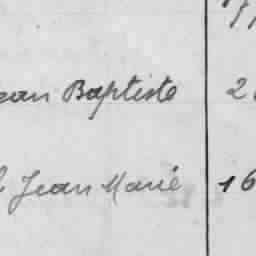 ean Baptiste 2
Jean Marie 16